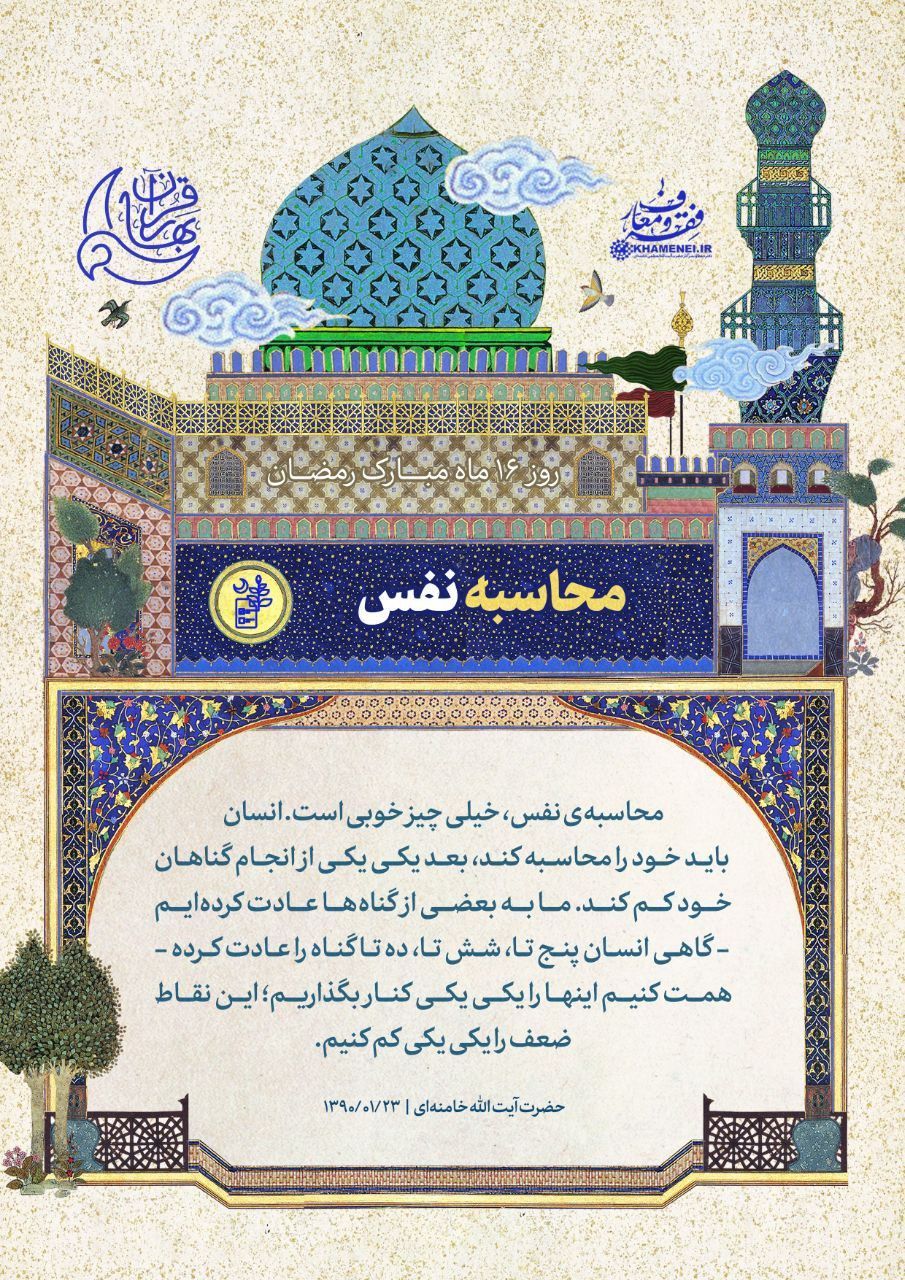 بهار قرآن
فقه و معارف
KHAMENEI.IR
روز ۱۶ ماه مبـــارک رمضـــان
محاسبه نفس
محاسبه‌ی نفس، خیلی چیز خوبی است. انسان
بایـد خـود را محاسـبه کنـد، بعـد یکـی یکـی از انجـام گناهـان
خـود کـم کنـد. مـا بـه بعضـی از گناه‌هـا عـادت کرده‌ایـم
- گاهـی انسـان پنج تـا، شـش تـا، ده تـا گنـاه را عـادت کـرده -
همـت کنیـم اینهـا را یکـی یکـی کنـار بگذاریـم؛ ایـن نقـاط
ضعف را یکی یکی کم کنیم.
حضرت آیت الله خامنه‌ای | ۱۳۹۰/۰۱/۲۳